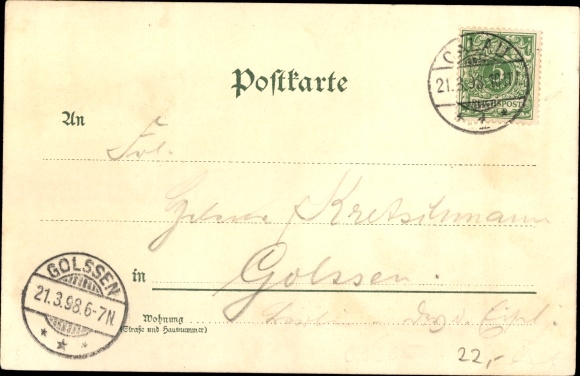 CALAU
21.3.98.
REICHSPOST
* 1 *
Postkarte
An
Frl.
Kretschmann
GOLSSEN
21.3.98.6-7N
* * *
in Golssen.
Wohnung
(Straße und Hausnummer)
22,-